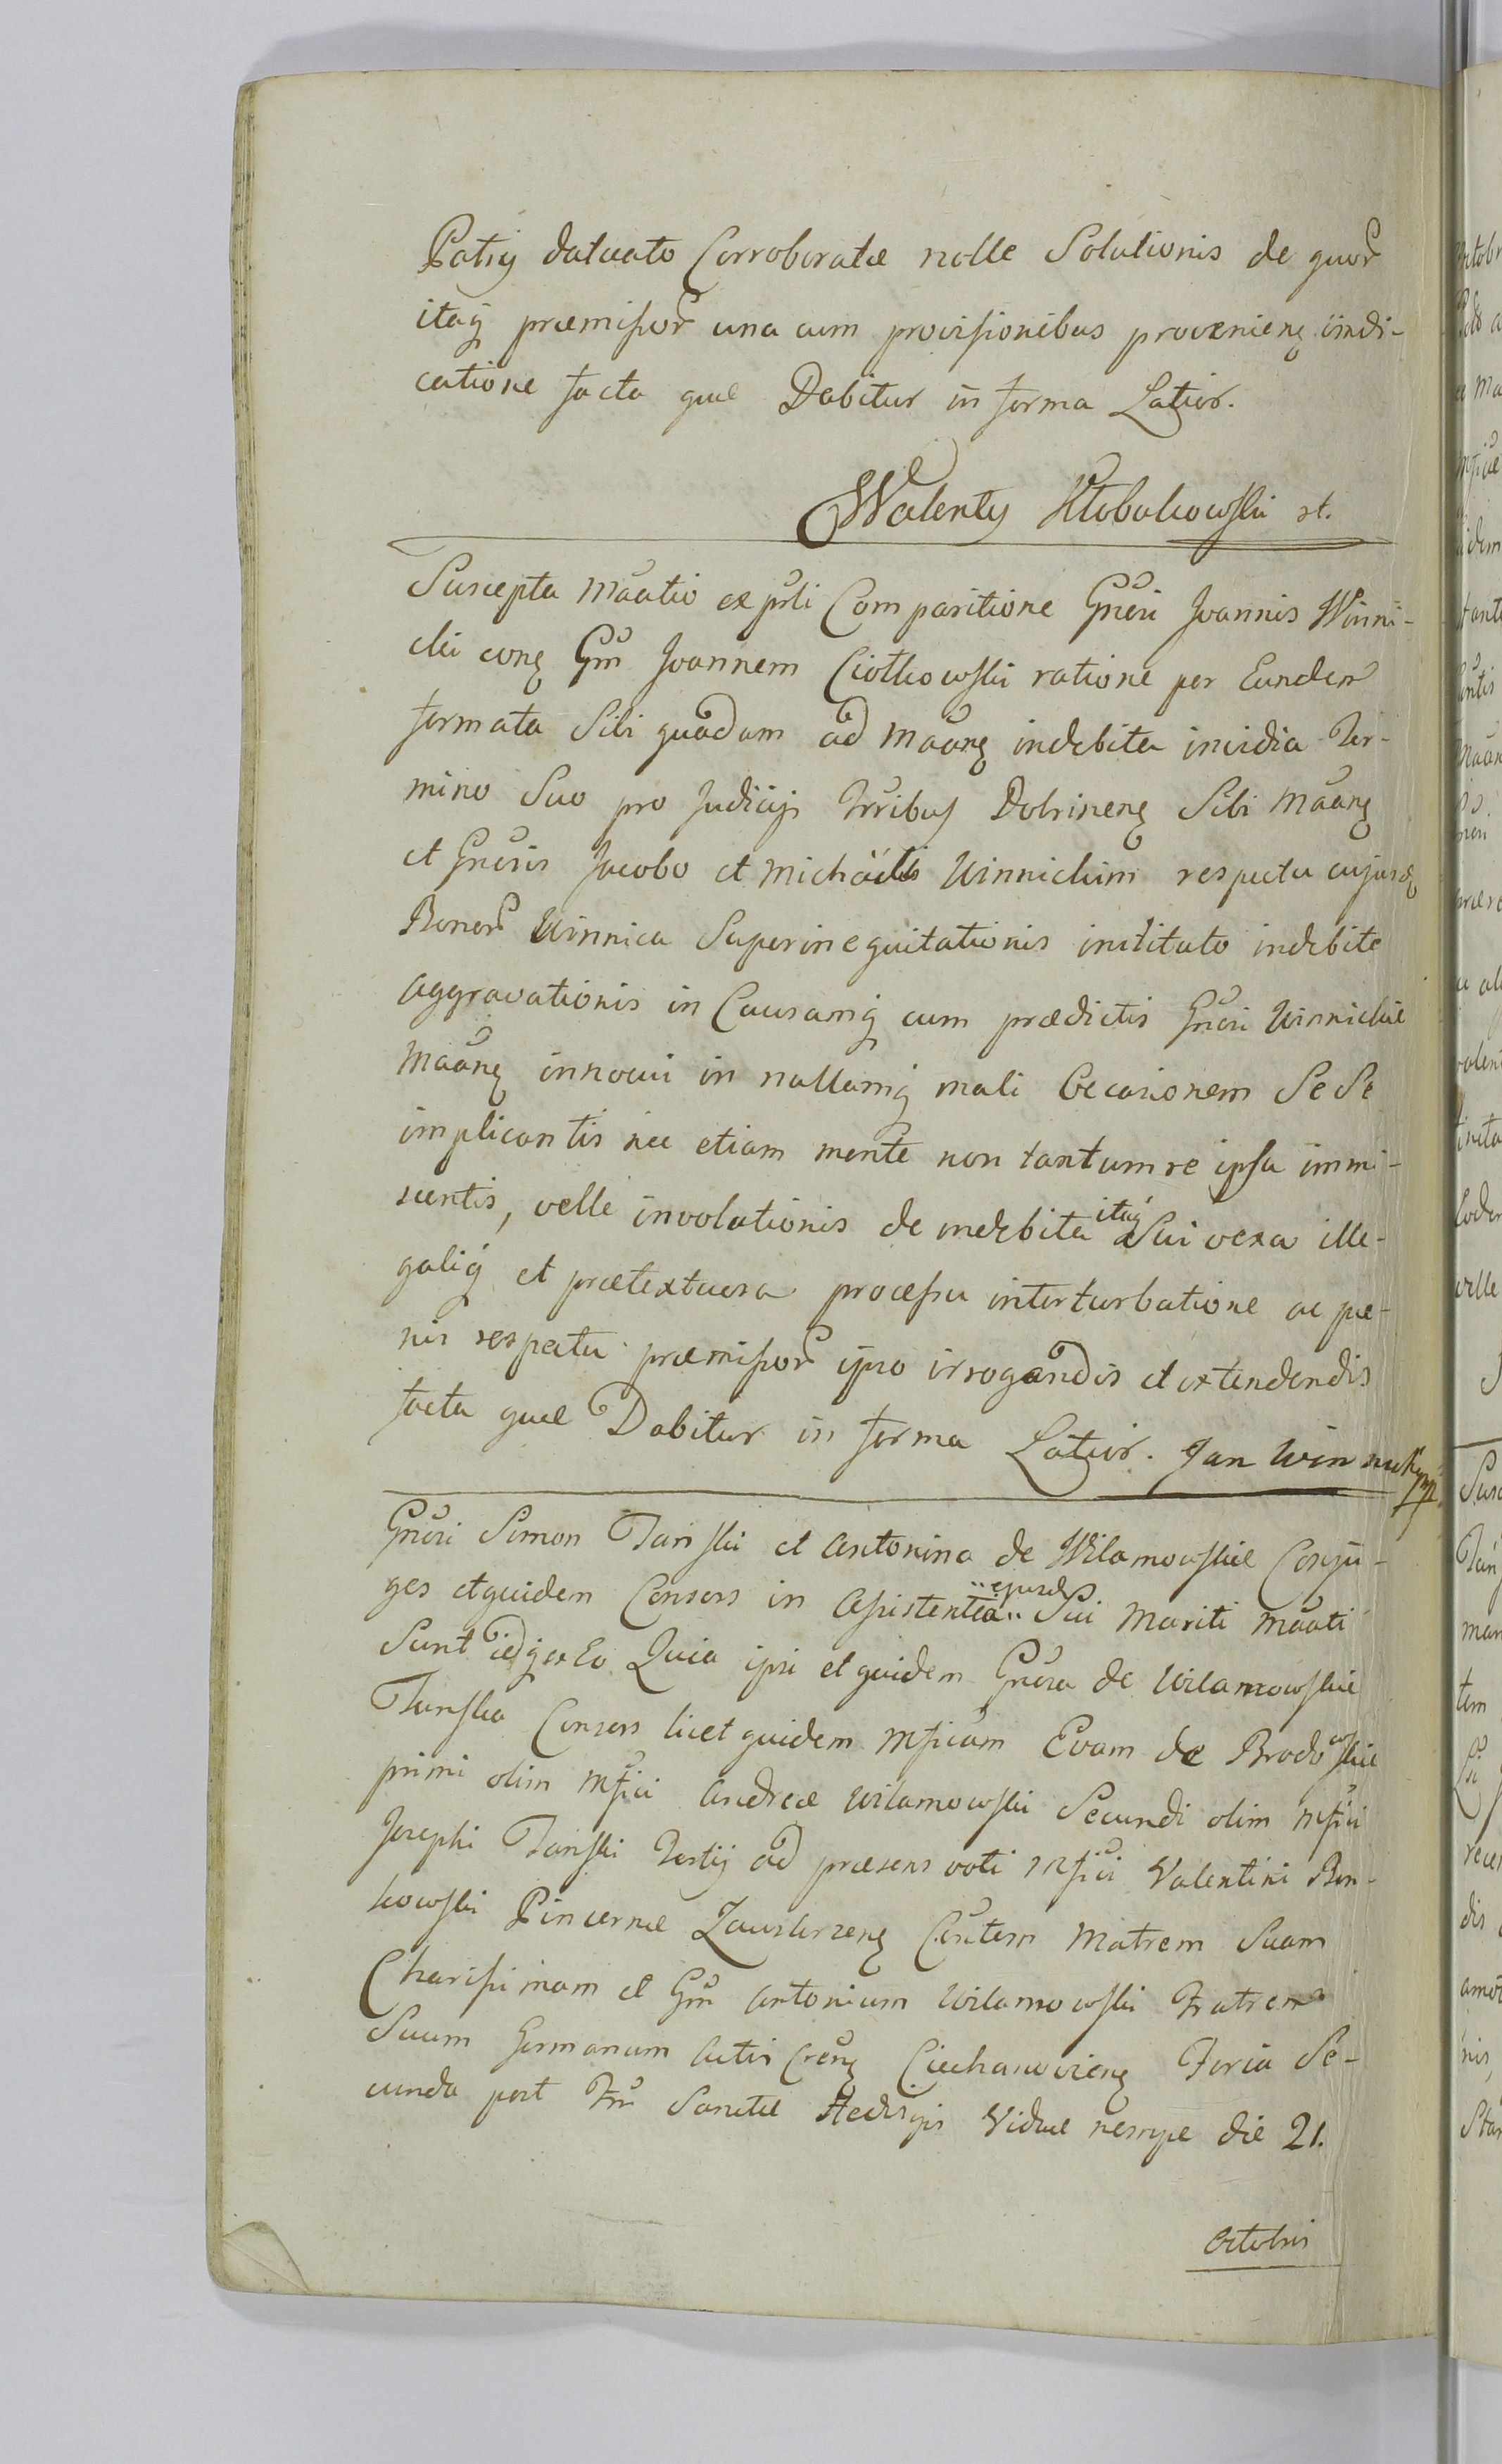 Patris datuato Corroboratæ nolle Solutionis de quor̃
itaq̃ præmissor̃ una cum provisionibus provenienẽ indi-
catione facta quæ Dabitur in forma Latior.
Walenty Kłobukowski
Suscepta Mãatio ex pñti Comparitione Gñeri Joannis Winni-
cki conẽ Gm̃ Joannem Ciotkowski ratione per Eundem
formata Sibi quadam ad Mãanẽ indebita invidia Ter-
mino Suo pro Judicijs Trribus Dobrinenẽ Sibi Mãanẽ
et Gñeris Jacobo et Michäeli Winnickim respectu cujusdẽ
Bonor̃ Winnica Superinequitationis instituto indebite
aggravationis in Causamq̃ cum prædictis Gñeri Winnickie
Mãanẽ innocui in nullamq̃ mali Occasionem Se Se
implicantis nec etiam mente non tantum re ipsa immi-
scentis, velle involutionis de indebita itaq̃ Sui vexa ille-
galiq̃ et prætextuosa processu interturbatione ac pæ-
nis respectu præmissor̃ ipso irrogandis et extendendis
facta quæ Dabitur in forma Latior. Jan Winnicki mp
Gñeri Simon Tański et Antonina de Wilamowskie Conju-
ges et quidem Consors in Assistentia ejusdẽ Sui Mariti Mãati
Sunt idq̃ ex Eo Quia ipsi et quidem Gñera de Wilamowskie
Tańska Consors licet quidem Mficam Evam de Brodowskie
primi olim Mfici Andreæ Wilamowski Secundi olim Mfici
Josephi Tański Tertij ad præsens voti Mfici Valentini Bon-
kowski Pincernæ Zawskrzenẽ Cõntem Matrem Suam
Charissimam et Gm̃ Antonium Wilamowski Fratrem
Suum Germanum Actis Crenẽ Ciechanovienẽ Feria Se-
cunda post Fm̃ Sanctæ Hedvigis Viduæ nempe die 21.
Octobris